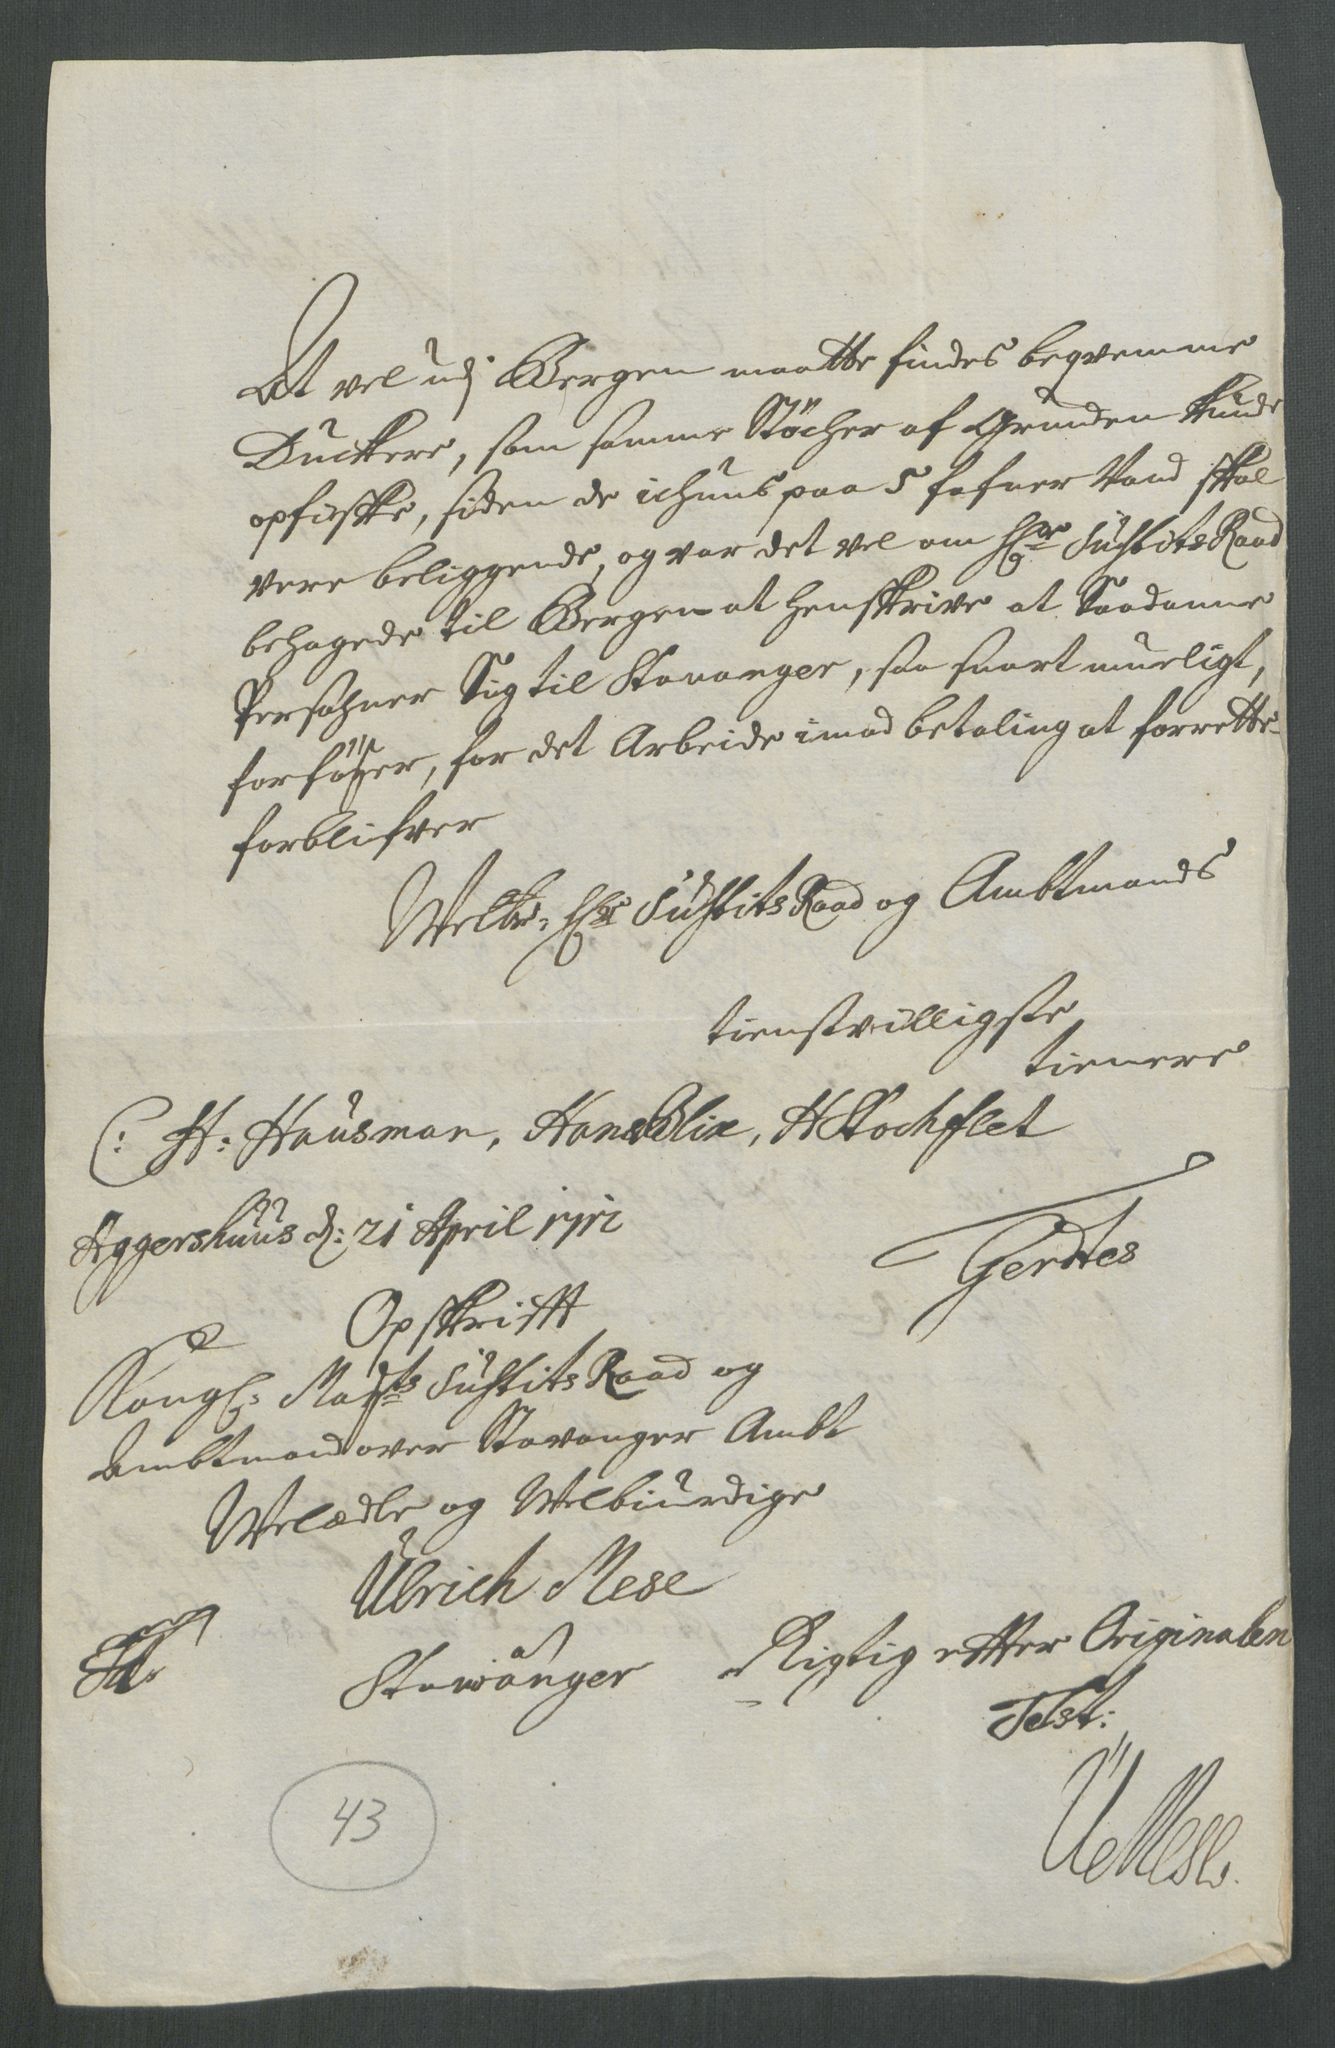 At vel udj Bergen maatte findes beqvemme
Duckere, som samme Støcher af Grunden kunde
opfiske, siden de ichuns paa 5 fafner Vand skal
vere beliggende, og var det vel om Hr Justits Raad
behagede til Bergen at henskrive at Saadanne
Persohner Sig til Stavanger, saa snart mueligt,
forføyer, for det Arbeide imod betaling at forrette
forblifver
Welbr: Hr Justits Raad og Ambtmands
tienstvilligste
tienere
C: H: Hausman, Hans Blix, H Stochflet
Gerdtes
Aggershuus d: 21 April 1712
Opskrifft
Kongl: Mayts Justits Raad og
Ambtmand over Stavanger Ambt
Welædle og Welbiurdige
Ulrich Mese
Stawanger
Rigtig effter Originalen
Test:
UMese.
43